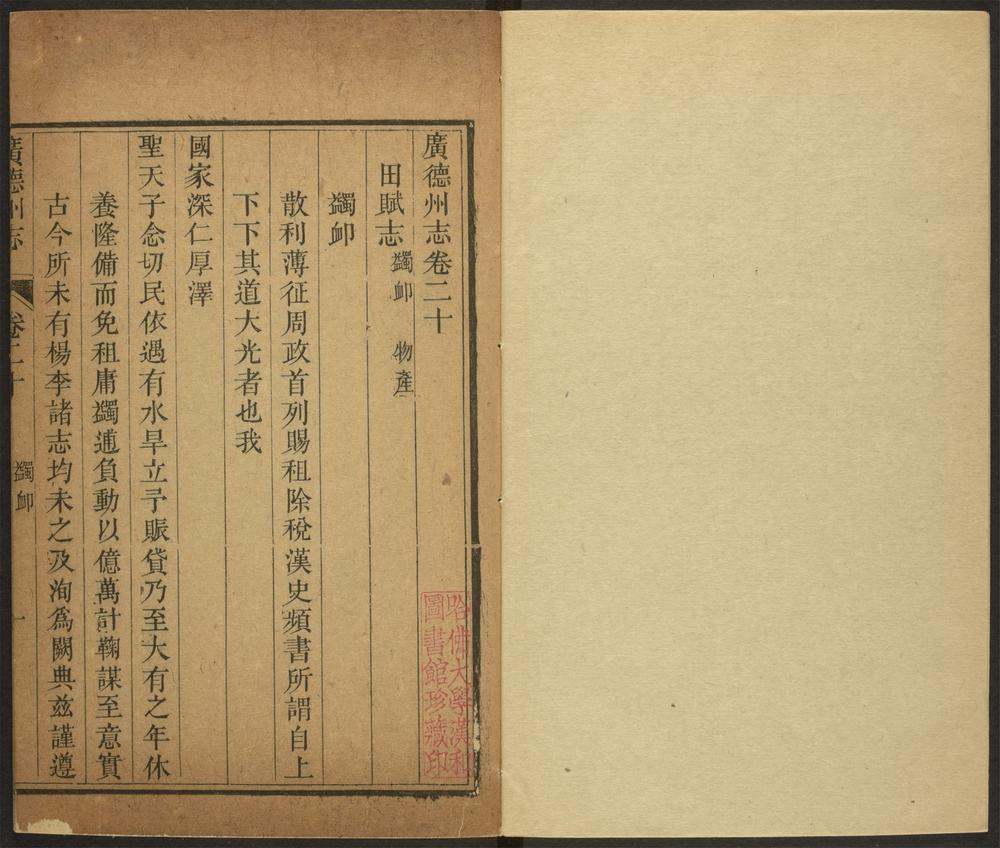 廣德州志卷二十
田賦志蠲卹 物產
蠲卹
散利薄征周政首列賜租除稅漢史頻書所謂自上
下下其道大光者也我
國家深仁厚澤
聖天子念切民依遇有水旱立予賑貸乃至大有之年休
養隆備而免租庸蠲逋負動以億萬計鞠謀至意實
古今所未有楊李諸志均未之及洵爲闕典茲謹遵
廣德州志 卷二十 蠲卹 一
哈佛大學漢和
圖書館珍藏印